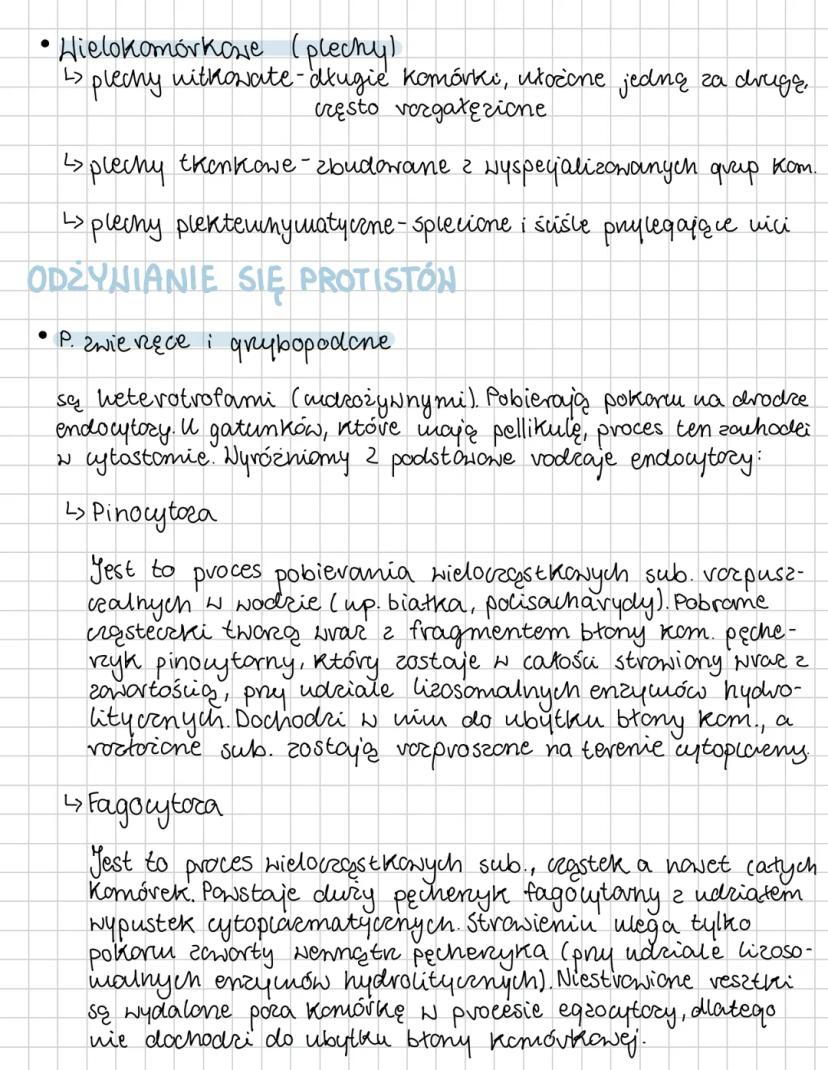 • Wielokomórkowe (plechy)
↳ plechy nitkowate - długie komórki, ułożone jedną za drugą,
często rozgałęzione
↳ plechy tkankowe - zbudowane z wyspecjalizowanych grup kom.
↳ plechy plektenhymatyczne - splecione i ściśle przylegające nici
ODŻYWIANIE SIĘ PROTISTÓW
• P. zwierzęce i grzybopodone
są heterotrofami (cudzożywnymi). Pobierają pokarm na drodze
endocytozy. U gatunków, które mają pellikulę, proces ten zachodzi
w cytostomie. Wyróżniamy 2 podstawowe rodzaje endocytozy:
↳ Pinocytoza
Jest to proces pobierania wielocząstkowych sub. rozpusz-
czalnych w wodzie (np. białka, polisacharydy). Pobrane
cząsteczki tworzą wraz z fragmentem błony kom. pęche-
rzyk pinocytarny, który zostaje w całości strawiony wraz z
zawartością, przy udziale lizosomalnych enzymów hydro-
litycznych. Dochodzi w nim do ubytku błony kom., a
rozłożone sub. zostają rozproszone na terenie cytoplazmy.
↳ Fagocytoza
Jest to proces wielocząstkowych sub., cząstek a nawet całych
komórek. Powstaje duży pęcherzyk fagocytarny z udziałem
wypustek cytoplazmatycznych. Strawieniu ulega tylko
pokarm zawarty wewnątrz pęcherzyka (przy udziale lizoso-
malnych enzymów hydrolitycznych). Niestrawione resztki
są wydalone poza komórkę w procesie egzocytozy, dlatego
nie dochodzi do ubytku błony komórkowej.